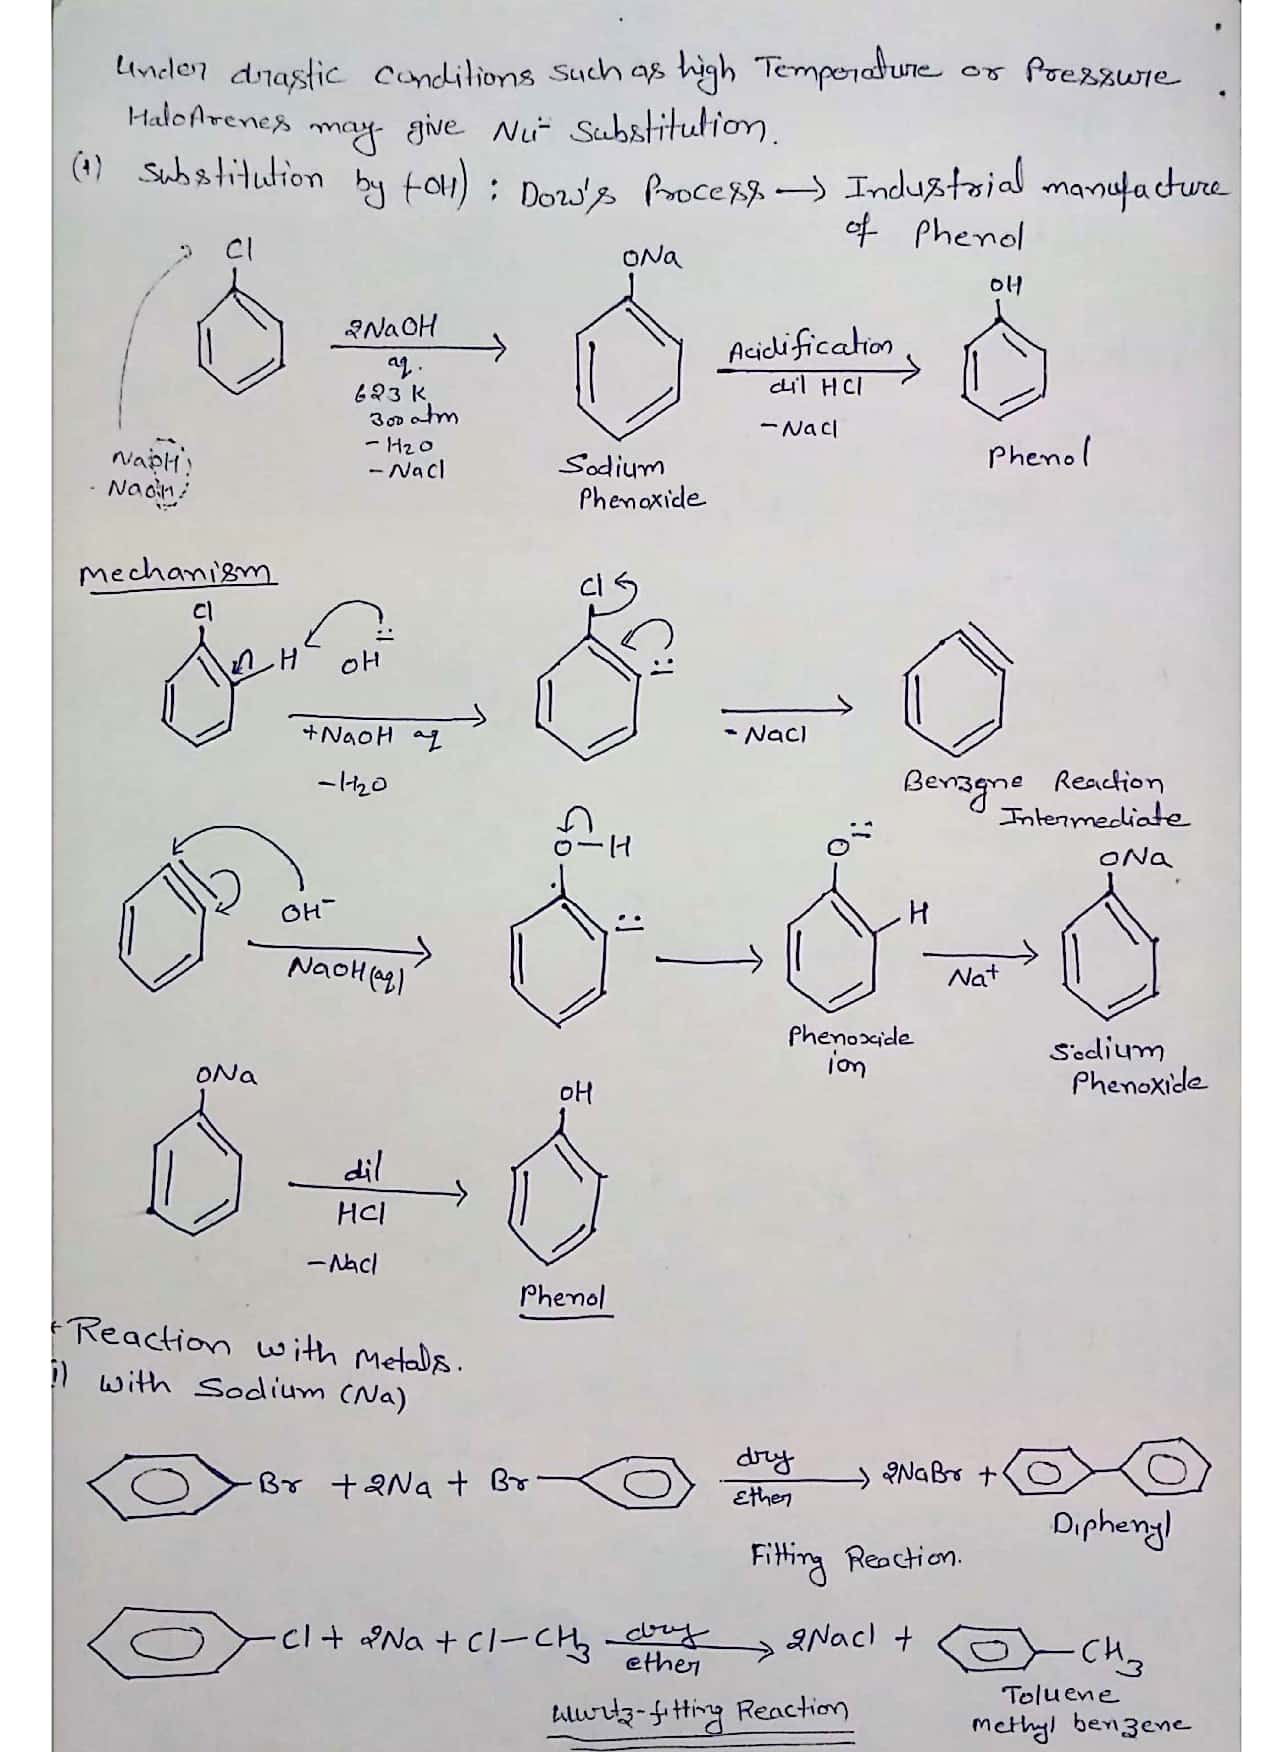 Under drastic conditions such as high Temperature or Pressure
HaloArenes may give Nu⁻ substitution.
(1) substitution by (-OH) : Dow's Process → Industrial manufacture
of Phenol
Cl
ONa
OH
2NaOH
aq.
623 K
300 atm
- H2O
- NaCl
Acidification
dil HCl
- NaCl
NaOH
NaOH
Sodium
Phenoxide
Phenol
Mechanism
Cl
H OH
+NaOH aq
-H2O
Cl
- NaCl
Benzyne Reaction
Intermediate
OH⁻
NaOH(aq)
O-H
O
H
Phenoxide
ion
Na+
ONa
Sodium
Phenoxide
ONa
dil
HCl
-NaCl
OH
Phenol
Reaction with Metals.
i) with Sodium (Na)
Br + 2Na + Br dry → 2NaBr +
Ether
Diphenyl
Fitting Reaction.
Cl + 2Na + Cl-CH3 dry → 2NaCl + CH3
ether
Wurtz-fitting Reaction
Toluene
methyl benzene